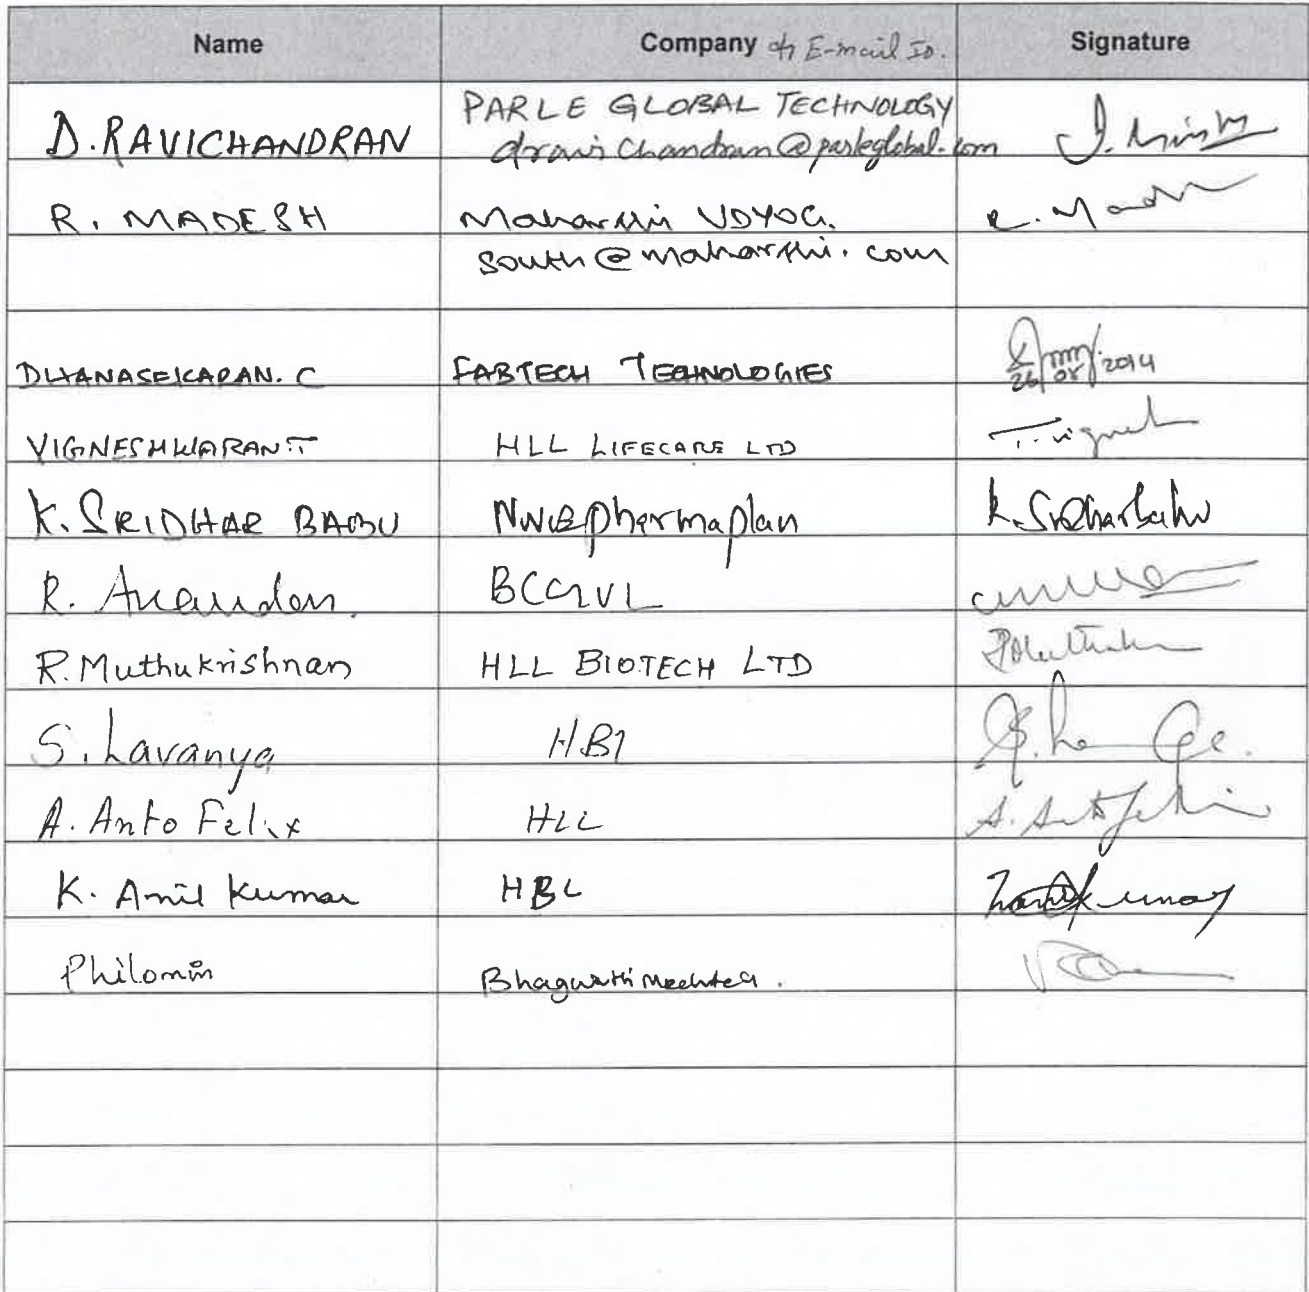 Name Company & E-mail ID. Signature
D. RAVICHANDRAN PARLE GLOBAL TECHNOLOGY
dravichandran@parleglobal.com
R. MADESH Maharshi UDYOG. R. Madesh
south@maharshi.com
DHANASEKARAN. C FABTECH TECHNOLOGIES 26/08/2014
VIGNESHWARAN.T HLL LIFECARE LTD T. Vignesh
K. SRIDHAR BABU NNE Pharmaplan K. Sridharbabu
R. Anandan. BCGVL
R. Muthukrishnan HLL BIOTECH LTD
S. Lavanya HBL
A. Anto Felix HLL A. Anto Felix
K. Anil Kumar HBL
Philomin Bhagwathi